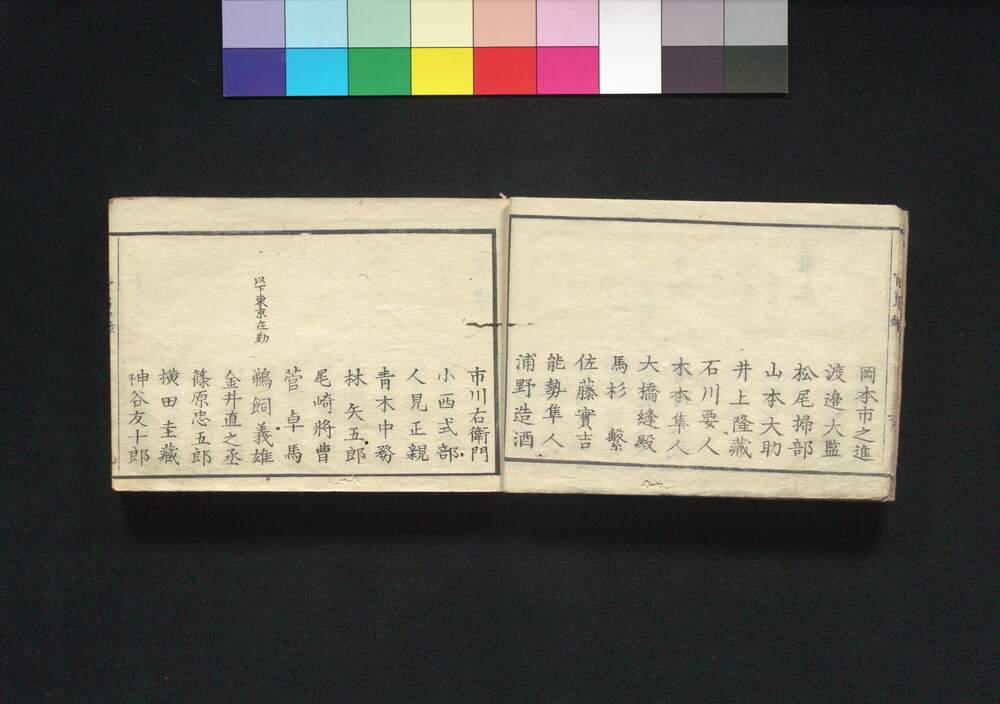 岡本市之進
渡邊大監
松尾掃部
山本大助
井上隆藏
石川要人
木本隼人
大橋縫殿
馬杉 繫
佐藤實吉
能勢隼人
浦野造酒
市川右衛門
小西式部
人見正親
青木中務
林 矢五郎
尾崎將曹
菅 卓馬
以下東京在勤
鵜飼義雄
金井直之丞
篠原忠五郎
横田圭藏
神谷友十郎